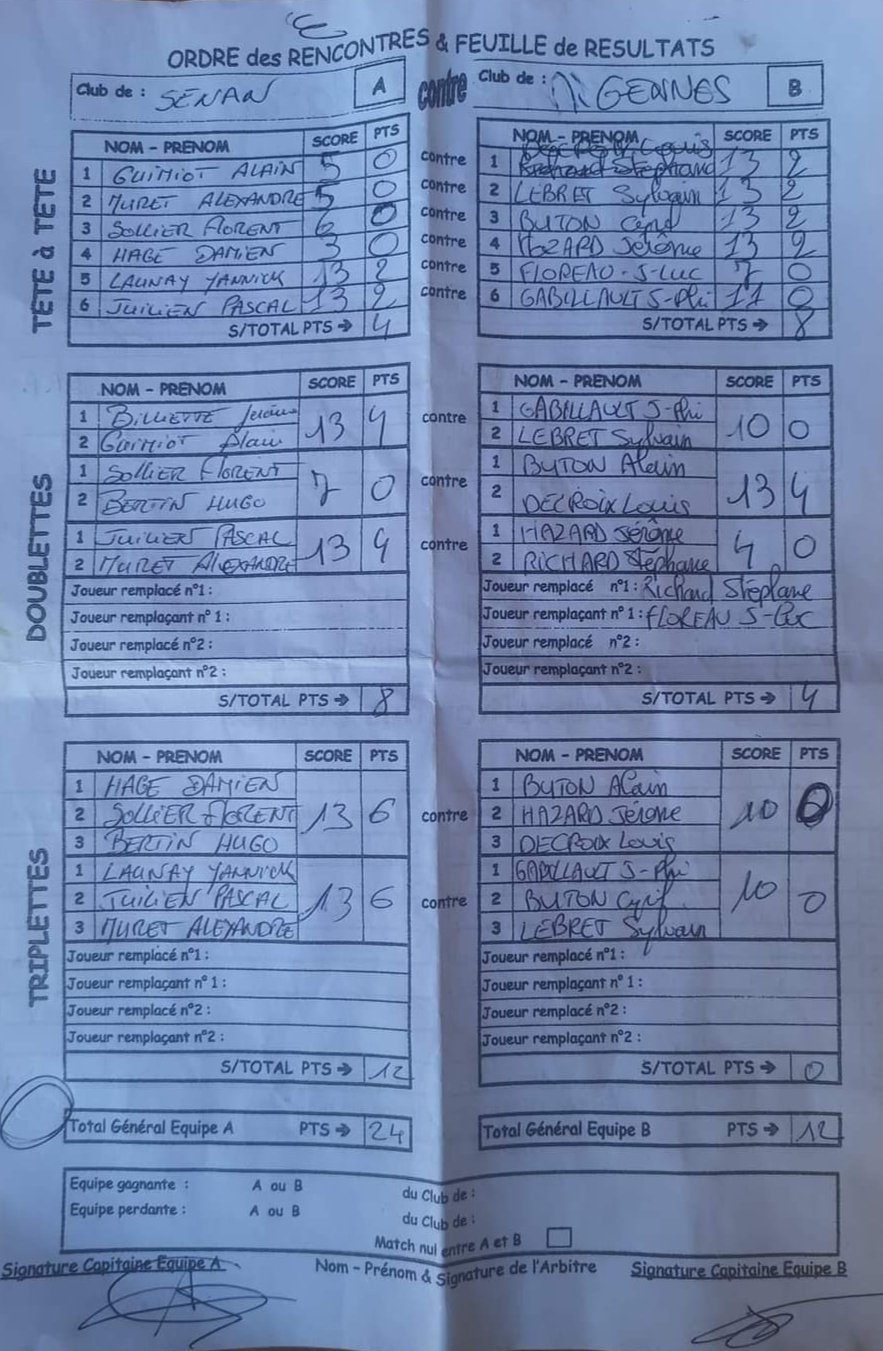 ORDRE des RENCONTRES & FEUILLE de RESULTATS
Club de : SENAN A contre Club de : MIGENNES B
TÊTE à TÊTE
NOM - PRENOM SCORE PTS NOM - PRENOM SCORE PTS
1 GUIMIOT ALAIN 5 0 contre 1 Louis 13 2
2 MURET ALEXANDRE 5 0 contre 2 LEBRET Sylvain 13 2
3 SOLLIER FLORENT 6 0 contre 3 BUTON Cyril 13 2
4 HAGE DAMIEN 3 0 contre 4 HAZARD Jérôme 13 2
5 LAUNAY YANNICK 13 2 contre 5 FLOREAU J-Luc 7 0
6 JUILIEN PASCAL 13 2 contre 6 GABILLAULT J-Phi 11 0
S/TOTAL PTS → 4 S/TOTAL PTS → 8
DOUBLETTES
NOM - PRENOM SCORE PTS NOM - PRENOM SCORE PTS
1 BILLIETTE Jérôme 13 4 contre 1 GABILLAULT J-Phi 10 0
2 GUIMIOT Alain 2 LEBRET Sylvain
1 SOLLIER FLORENT 7 0 contre 1 BUTON Alain 13 4
2 BERTIN HUGO 2 DECROIX Louis
1 JUILIEN PASCAL 13 4 contre 1 HAZARD Jérôme 4 0
2 MURET ALEXANDRE 2 RICHARD Stéphane
Joueur remplacé n°1 : Joueur remplacé n°1 : Richard Stéplane
Joueur remplaçant n° 1 : Joueur remplaçant n° 1 : FLOREAU J-Luc
Joueur remplacé n°2 : Joueur remplacé n°2 :
Joueur remplaçant n°2 : Joueur remplaçant n°2 :
S/TOTAL PTS → 8 S/TOTAL PTS → 4
TRIPLETTES
NOM - PRENOM SCORE PTS NOM - PRENOM SCORE PTS
1 HAGE DAMIEN 1 BUTON Alain
2 SOLLIER FLORENT 13 6 contre 2 HAZARD Jérôme 10 0
3 BERTIN HUGO 3 DECROIX Louis
1 LAUNAY YANNICK 1 GABILLAULT J-Phi
2 JUILIEN PASCAL 13 6 contre 2 BUTON Cyril 10 0
3 MURET ALEXANDRE 3 LEBRET Sylvain
Joueur remplacé n°1 : Joueur remplacé n°1 :
Joueur remplaçant n° 1 : Joueur remplaçant n° 1 :
Joueur remplacé n°2 : Joueur remplacé n°2 :
Joueur remplaçant n°2 : Joueur remplaçant n°2 :
S/TOTAL PTS → 12 S/TOTAL PTS → 0
Total Général Equipe A PTS → 24 Total Général Equipe B PTS → 12
Equipe gagnante : A ou B du Club de :
Equipe perdante : A ou B du Club de :
Match nul entre A et B
Signature Capitaine Equipe A Nom - Prénom & Signature de l'Arbitre Signature Capitaine Equipe B